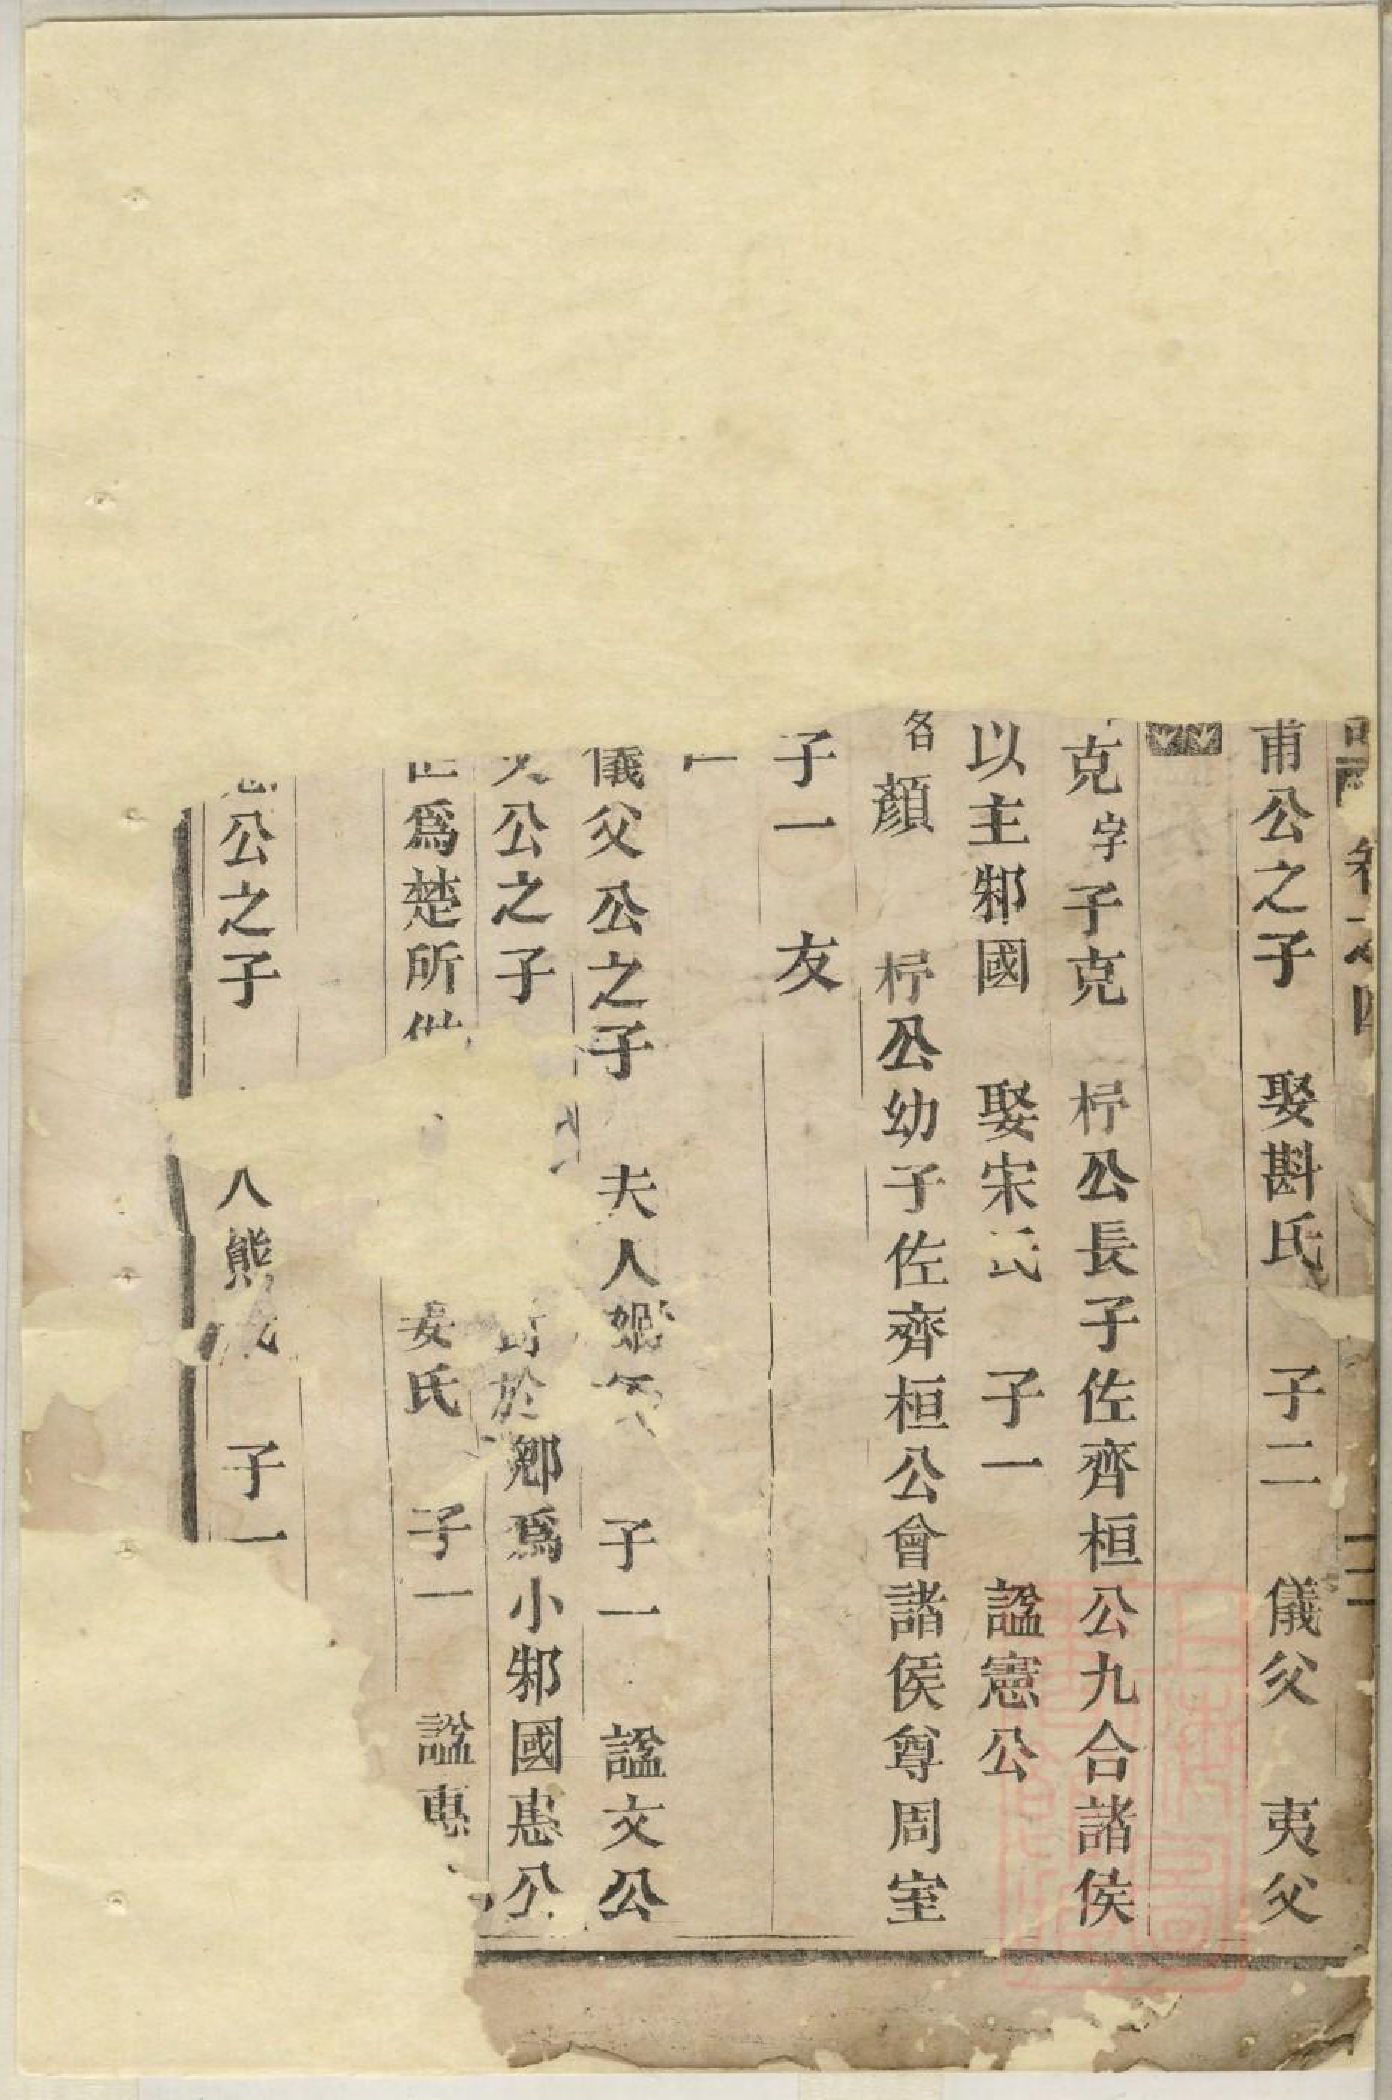 卷之四
甫公之子 娶斟氏 子二 儀父 夷父
克 字子克 杼公長子佐齊桓公九合諸侯
以主邾國 娶宋氏 子一 諡憲公
名顏 杼公幼子佐齊桓公會諸侯尊周室
子一 友
儀父公之子 夫人 子一 諡文公
公之子 於郳爲小邾國惠公
爲楚所 氏 子一 諡惠
公之子 熊 子一